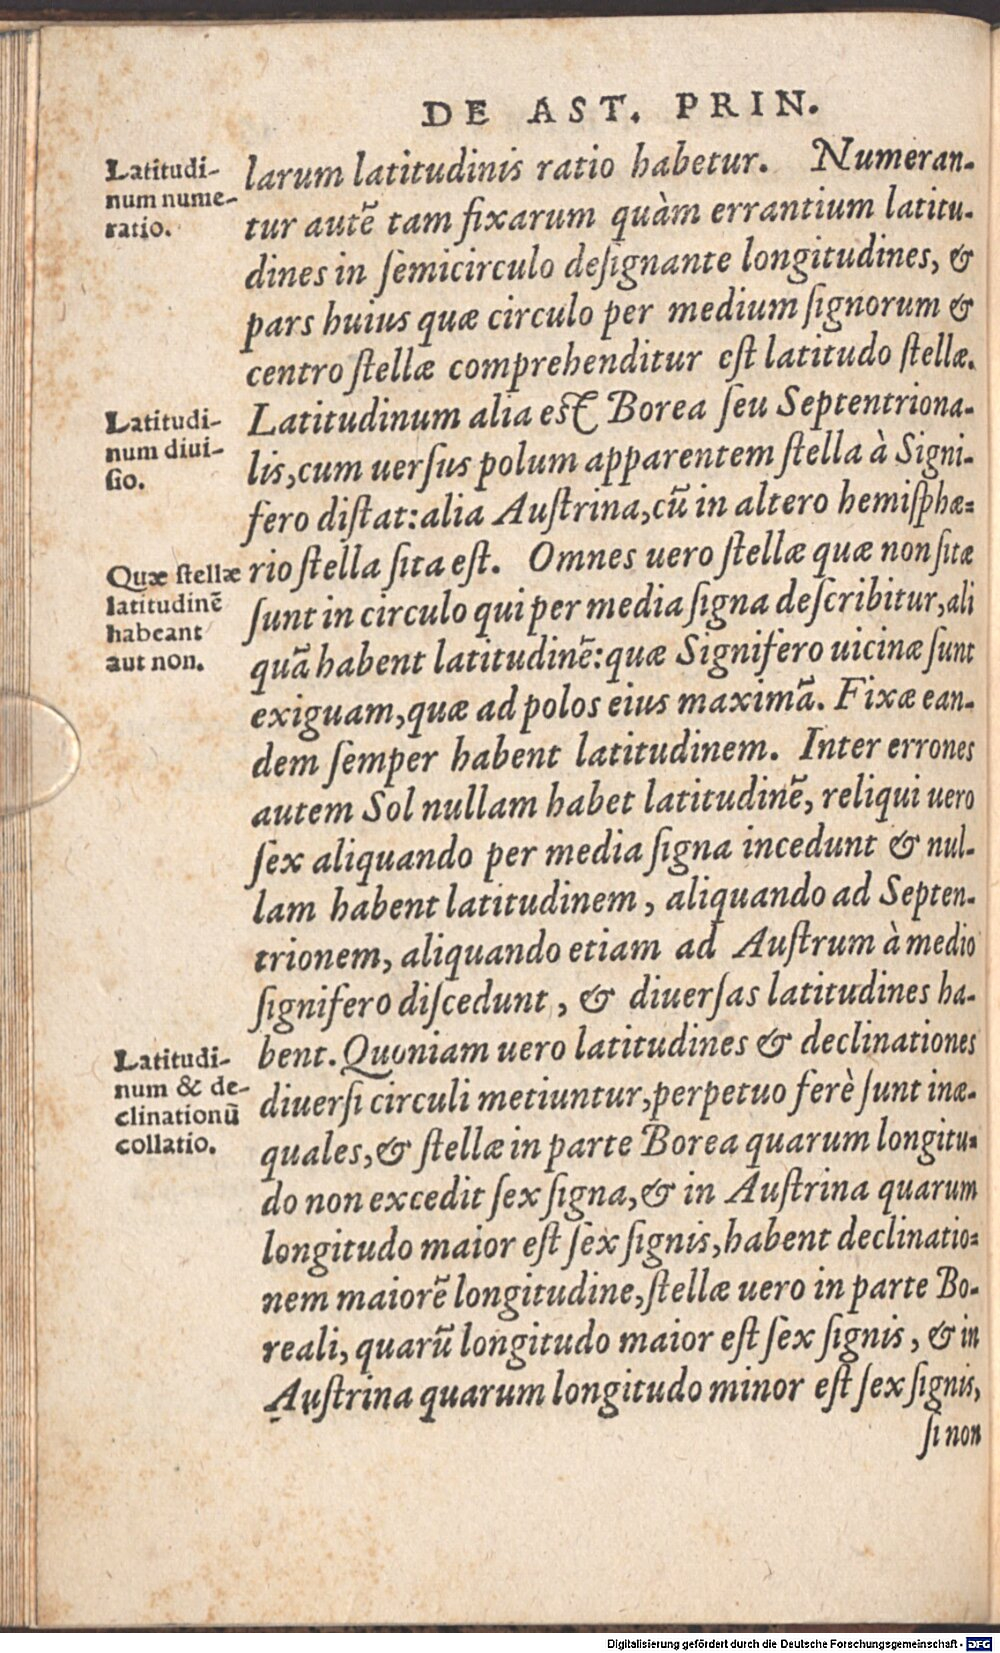 DE AST. PRIN.
Latitudi-
num nume-
ratio.
larum latitudinis ratio habetur. Numeran-
tur autē tam fixarum quàm errantium latitu-
dines in ſemicirculo deſignante longitudines, &
pars huius quæ circulo per medium ſignorum &
centro ſtellæ comprehenditur eſt latitudo ſtellæ.
Latitudi-
num diui-
ſio.
Latitudinum alia eſt Borea ſeu Septentriona-
lis, cum uerſus polum apparentem ſtella à Signi-
fero diſtat: alia Auſtrina, cū in altero hemiſphæ-
Quæ ſtellæ
latitudinē
habeant
aut non.
rio ſtella ſita eſt. Omnes uero ſtellæ quæ non ſitæ
ſunt in circulo qui per media ſigna deſcribitur, ali
quā habent latitudinē: quæ Signifero uicinæ ſunt
exiguam, quæ ad polos eius maximā. Fixæ ean-
dem ſemper habent latitudinem. Inter errones
autem Sol nullam habet latitudinē, reliqui uero
ſex aliquando per media ſigna incedunt & nul-
lam habent latitudinem, aliquando ad Septen-
trionem, aliquando etiam ad Auſtrum à medio
ſignifero diſcedunt, & diuerſas latitudines ha-
Latitudi-
num & de-
clinationū
collatio.
bent. Quoniam uero latitudines & declinationes
diuerſi circuli metiuntur, perpetuo ferè ſunt inæ-
quales, & ſtellæ in parte Borea quarum longitu-
do non excedit ſex ſigna, & in Auſtrina quarum
longitudo maior eſt ſex ſignis, habent declinatio-
nem maiorē longitudine, ſtellæ uero in parte Bo-
reali, quarū longitudo maior eſt ſex ſignis, & in
Auſtrina quarum longitudo minor eſt ſex ſignis,
ſi non
Digitalisierung gefördert durch die Deutsche Forschungsgemeinschaft - DFG